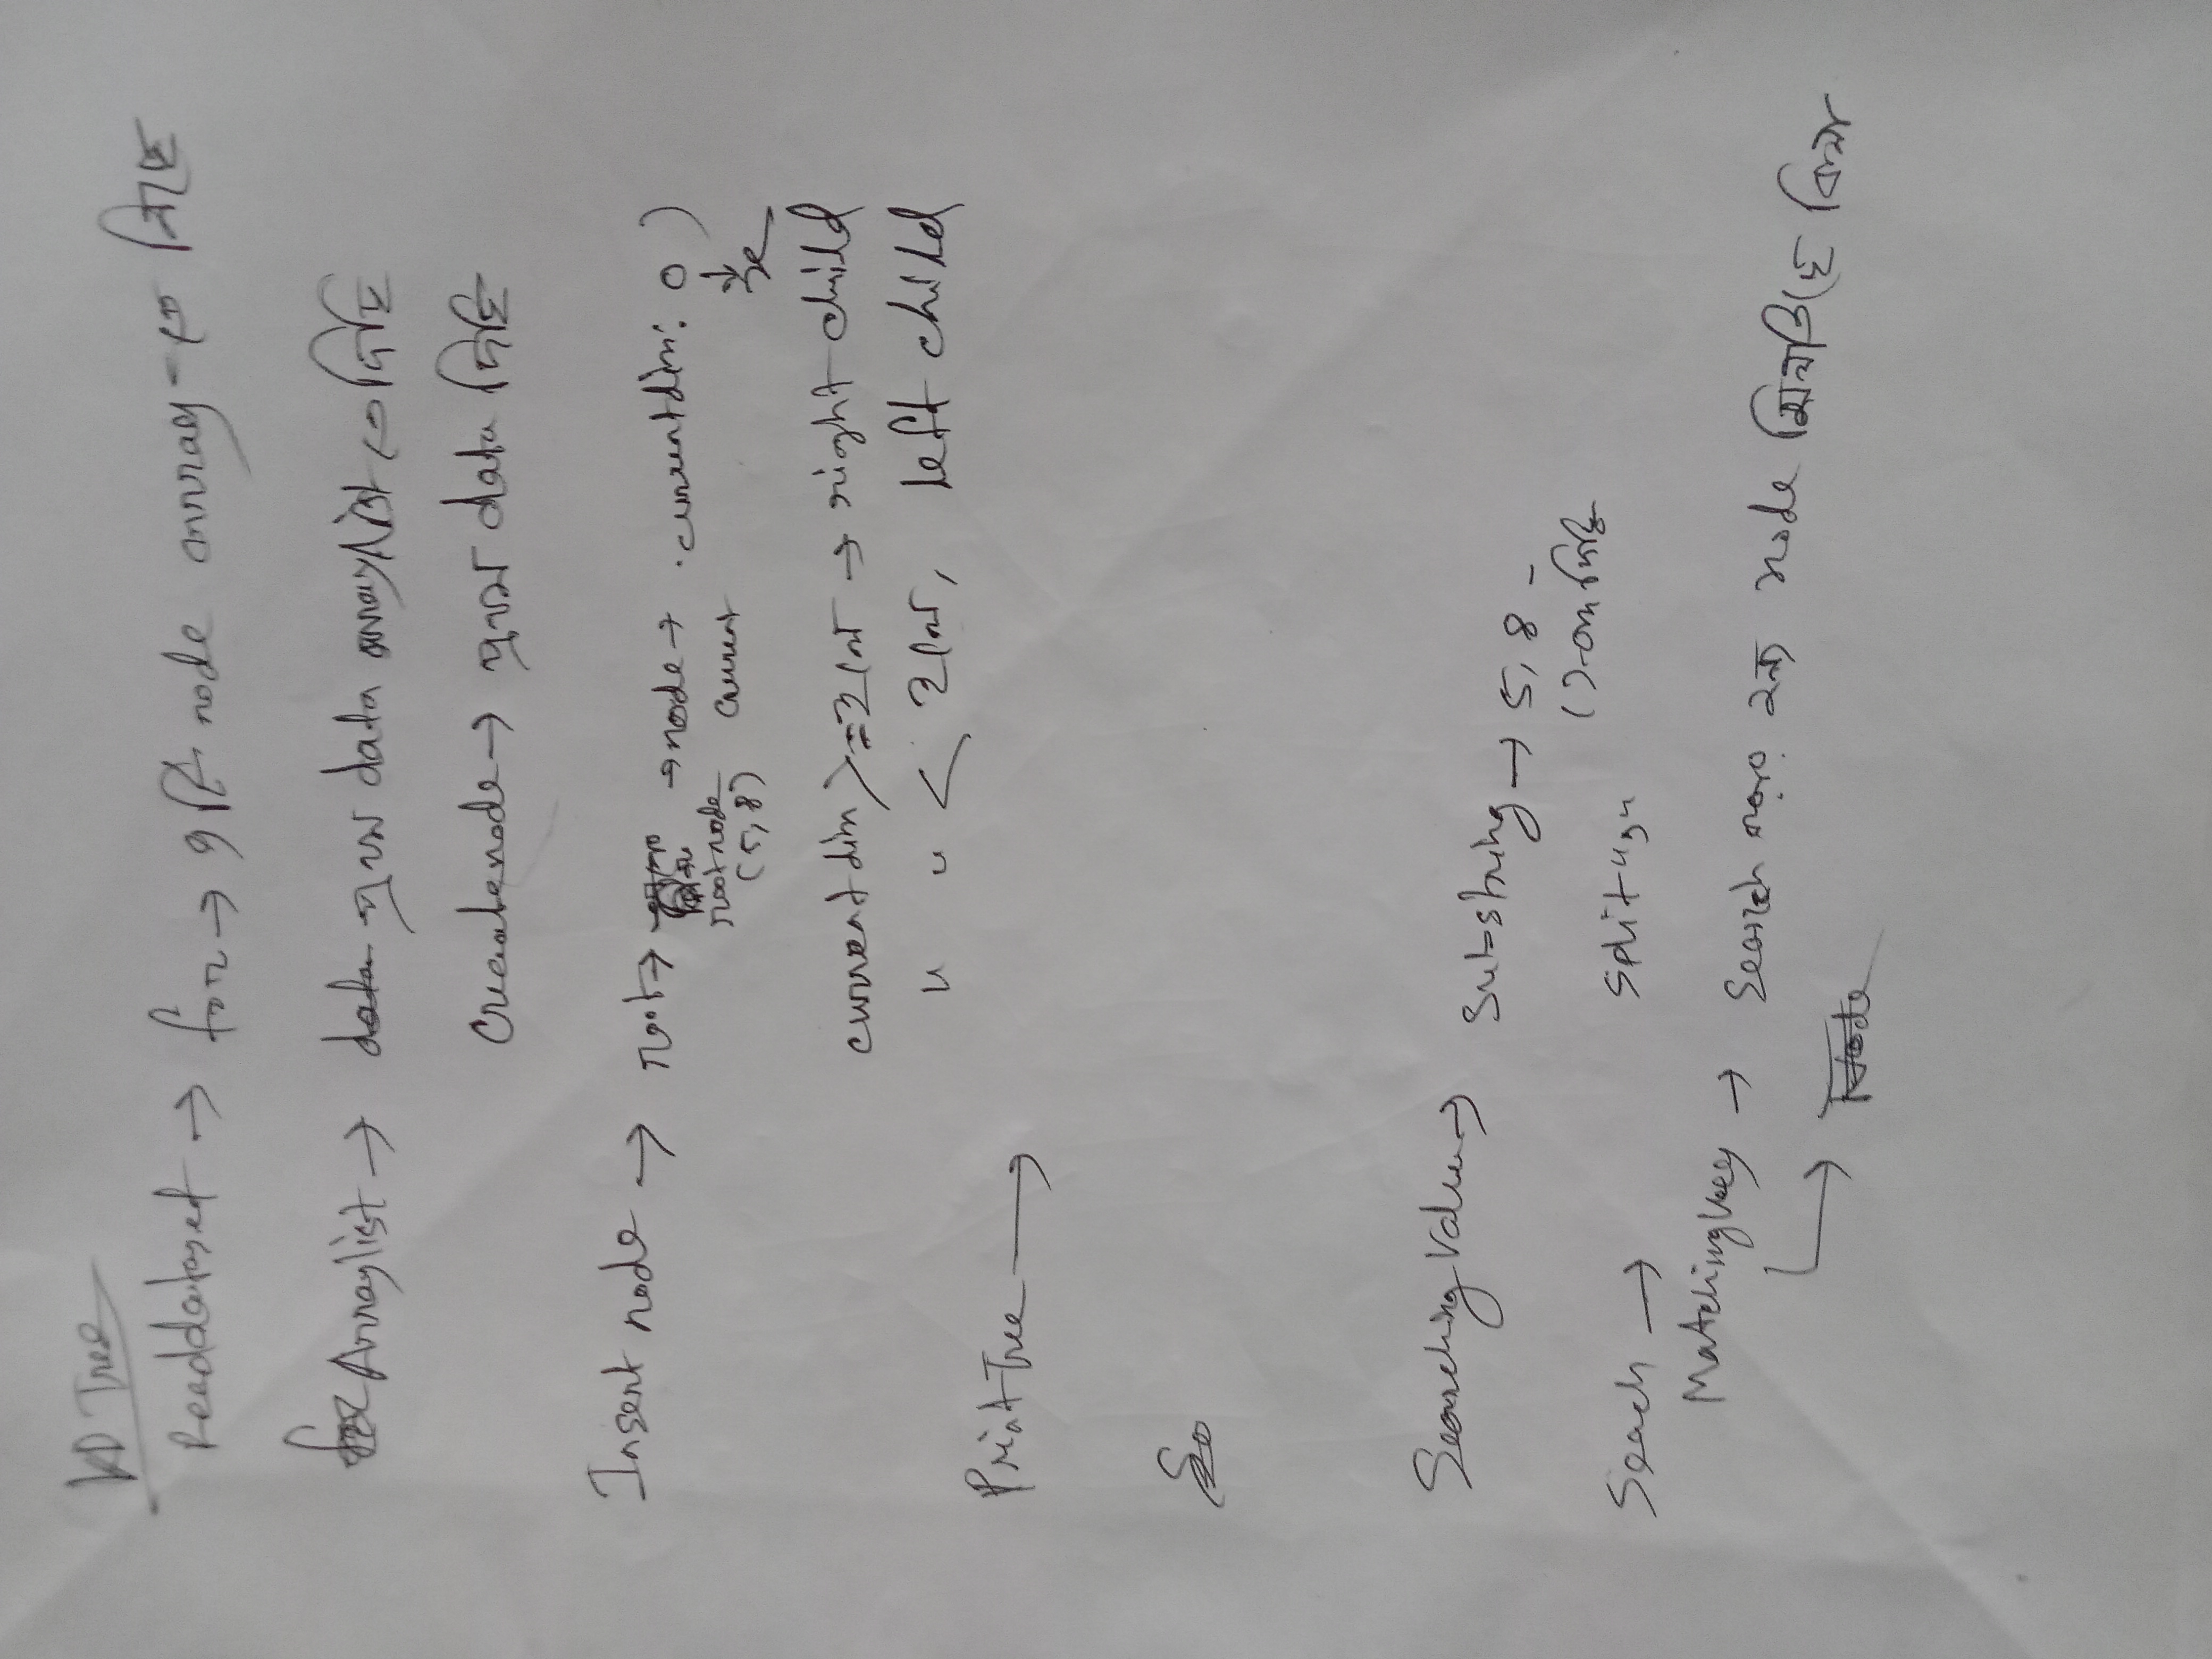 KD Tree
Readdataset → for → ৭টি node array-তে নিছি
Arraylist → পুরো data arraylist এ নিছি
Createnode → পুরো data নিছি
Insert node → root → node → currentdim: 0)
rootnode current
(5,8)
currentdim >= হলে → right child
" " < হলে, left child
PrintTree →
Searching Value → Sub-string → 5, 8 -
Split ","
Search →
Matchingkey → Search node